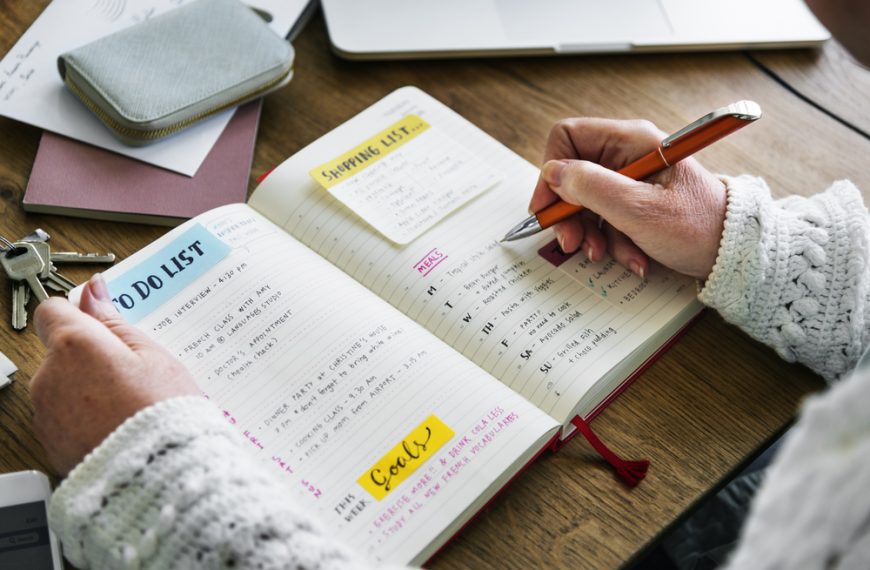 TO DO LIST
- JOB INTERVIEW - 4:30 PM
- FRENCH CLASS WITH AMY
10 am @ LANGUAGES STUDIO
- DOCTOR'S APPOINTMENT
(health check)
- DINNER PARTY at CHRISTINE'S HOUSE
* don't forget to bring white wine!
- COOKING CLASS - 9.30 Am
- PICK UP mom from AIRPORT - 3.15 PM
FRI
SAT
SUN
THIS
WEEK
Goals
- EXERCISE MORE & DRINK COLA LESS
- STUDY ALL NEW FRENCH VOCABULARIES
SHOPPING LIST...
MEALS
M -
T - Bean Burger
+ baked pumpkin
W - Roasted chicken
TH - Pasta with Veggies
F - PARTY
no need to cook
SA - Avocado Salad
SU - Grilled Fish
+ choco pudding
LAUNDRY
KITCHEN
BEDROOM